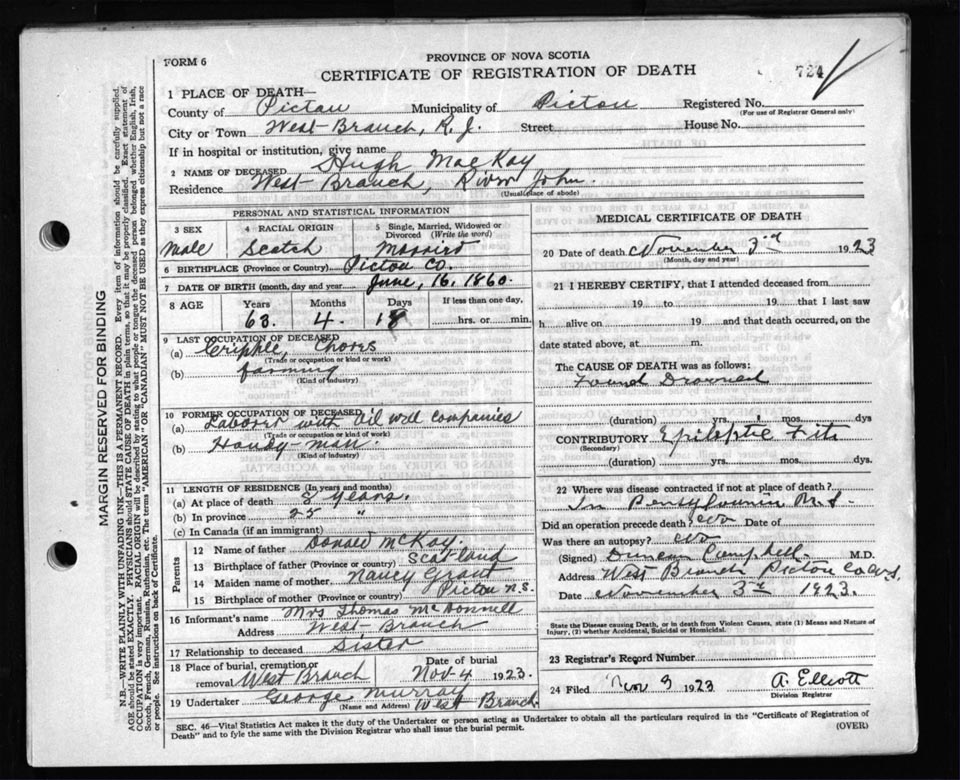 FORM 6
PROVINCE OF NOVA SCOTIA
CERTIFICATE OF REGISTRATION OF DEATH
724
1 PLACE OF DEATH—
County of Pictou Municipality of Pictou Registered No.
(For use of Registrar General only)
City or Town West Branch, R. J. Street House No.
If in hospital or institution, give name
2 NAME OF DECEASED Hugh MacKay
Residence West Branch, River John.
(Usual place of abode)
PERSONAL AND STATISTICAL INFORMATION
3 SEX Male
4 RACIAL ORIGIN Scotch
5 Single, Married, Widowed or Divorced (Write the word) Married
6 BIRTHPLACE (Province or Country) Pictou Co.
7 DATE OF BIRTH (month, day and year) June, 16, 1860.
8 AGE Years Months Days If less than one day,
63. 4. 18 hrs. or min.
9 LAST OCCUPATION OF DECEASED
(a) Cripple, Chores
(Trade or occupation or kind or work)
(b) farming
(Kind of industry)
10 FORMER OCCUPATION OF DECEASED
(a) Laborer with Oil Well Companies
(Trade or occupation or kind of work)
(b) Handy-man.
(Kind of industry)
11 LENGTH OF RESIDENCE (In years and months)
(a) At place of death 8 years.
(b) In province 25 "
(c) In Canada (if an immigrant)
Parents
12 Name of father Donald McKay.
13 Birthplace of father (Province or country) Scotland
14 Maiden name of mother Nancy Grant
15 Birthplace of mother (Province or country) Pictou N.S.
16 Informant's name Mrs Thomas McDonnell
Address West-Branch
17 Relationship to deceased Sister
18 Place of burial, cremation or removal West Branch Date of burial Nov-4 1923.
19 Undertaker George Murray West Branch.
(Name and Address)
MEDICAL CERTIFICATE OF DEATH
20 Date of death November 3rd 1923
(Month, day and year)
21 I HEREBY CERTIFY, that I attended deceased from
19 to 19 that I last saw
h alive on 19 and that death occurred, on
date stated above, at m.
The CAUSE OF DEATH was as follows:
Found Drowned
(duration) yrs. mos. dys
CONTRIBUTORY Epileptic Fits
(Secondary)
(duration) yrs. mos. dys
22 Where was disease contracted if not at place of death?
In
Did an operation precede death? No Date of
Was there an autopsy? No
(Signed) Duncan Campbell M.D.
Address West Branch Pictou Co N.S.
Date November 3rd 1923.
State the Disease causing Death, or in death from Violent Causes, state (1) Means and Nature of
Injury, (2) whether Accidental, Suicidal or Homicidal.
23 Registrar's Record Number
24 Filed Nov 3 1923 A. Elliott
Division Registrar
SEC. 46—Vital Statistics Act makes it the duty of the Undertaker or person acting as Undertaker to obtain all the particulars required in the "Certificate of Registration of
Death" and to fyle the same with the Division Registrar who shall issue the burial permit.
(OVER)
MARGIN RESERVED FOR BINDING
N.B.—WRITE PLAINLY WITH UNFADING INK—THIS IS A PERMANENT RECORD. Every item of information should be carefully supplied.
AGE should be stated EXACTLY. PHYSICIANS should STATE CAUSE OF DEATH in plain terms, so that it may be properly classified. Exact statement of
OCCUPATION is very important. RACIAL ORIGIN will be described by stating to what people or tongue the deceased person belonged whether English, Irish,
Scotch, French, German, Russian, Ruthenian, etc. The terms "AMERICAN" or "CANADIAN" MUST NOT BE USED as they express citizenship but not a race
or people. See instructions on back of Certificate.